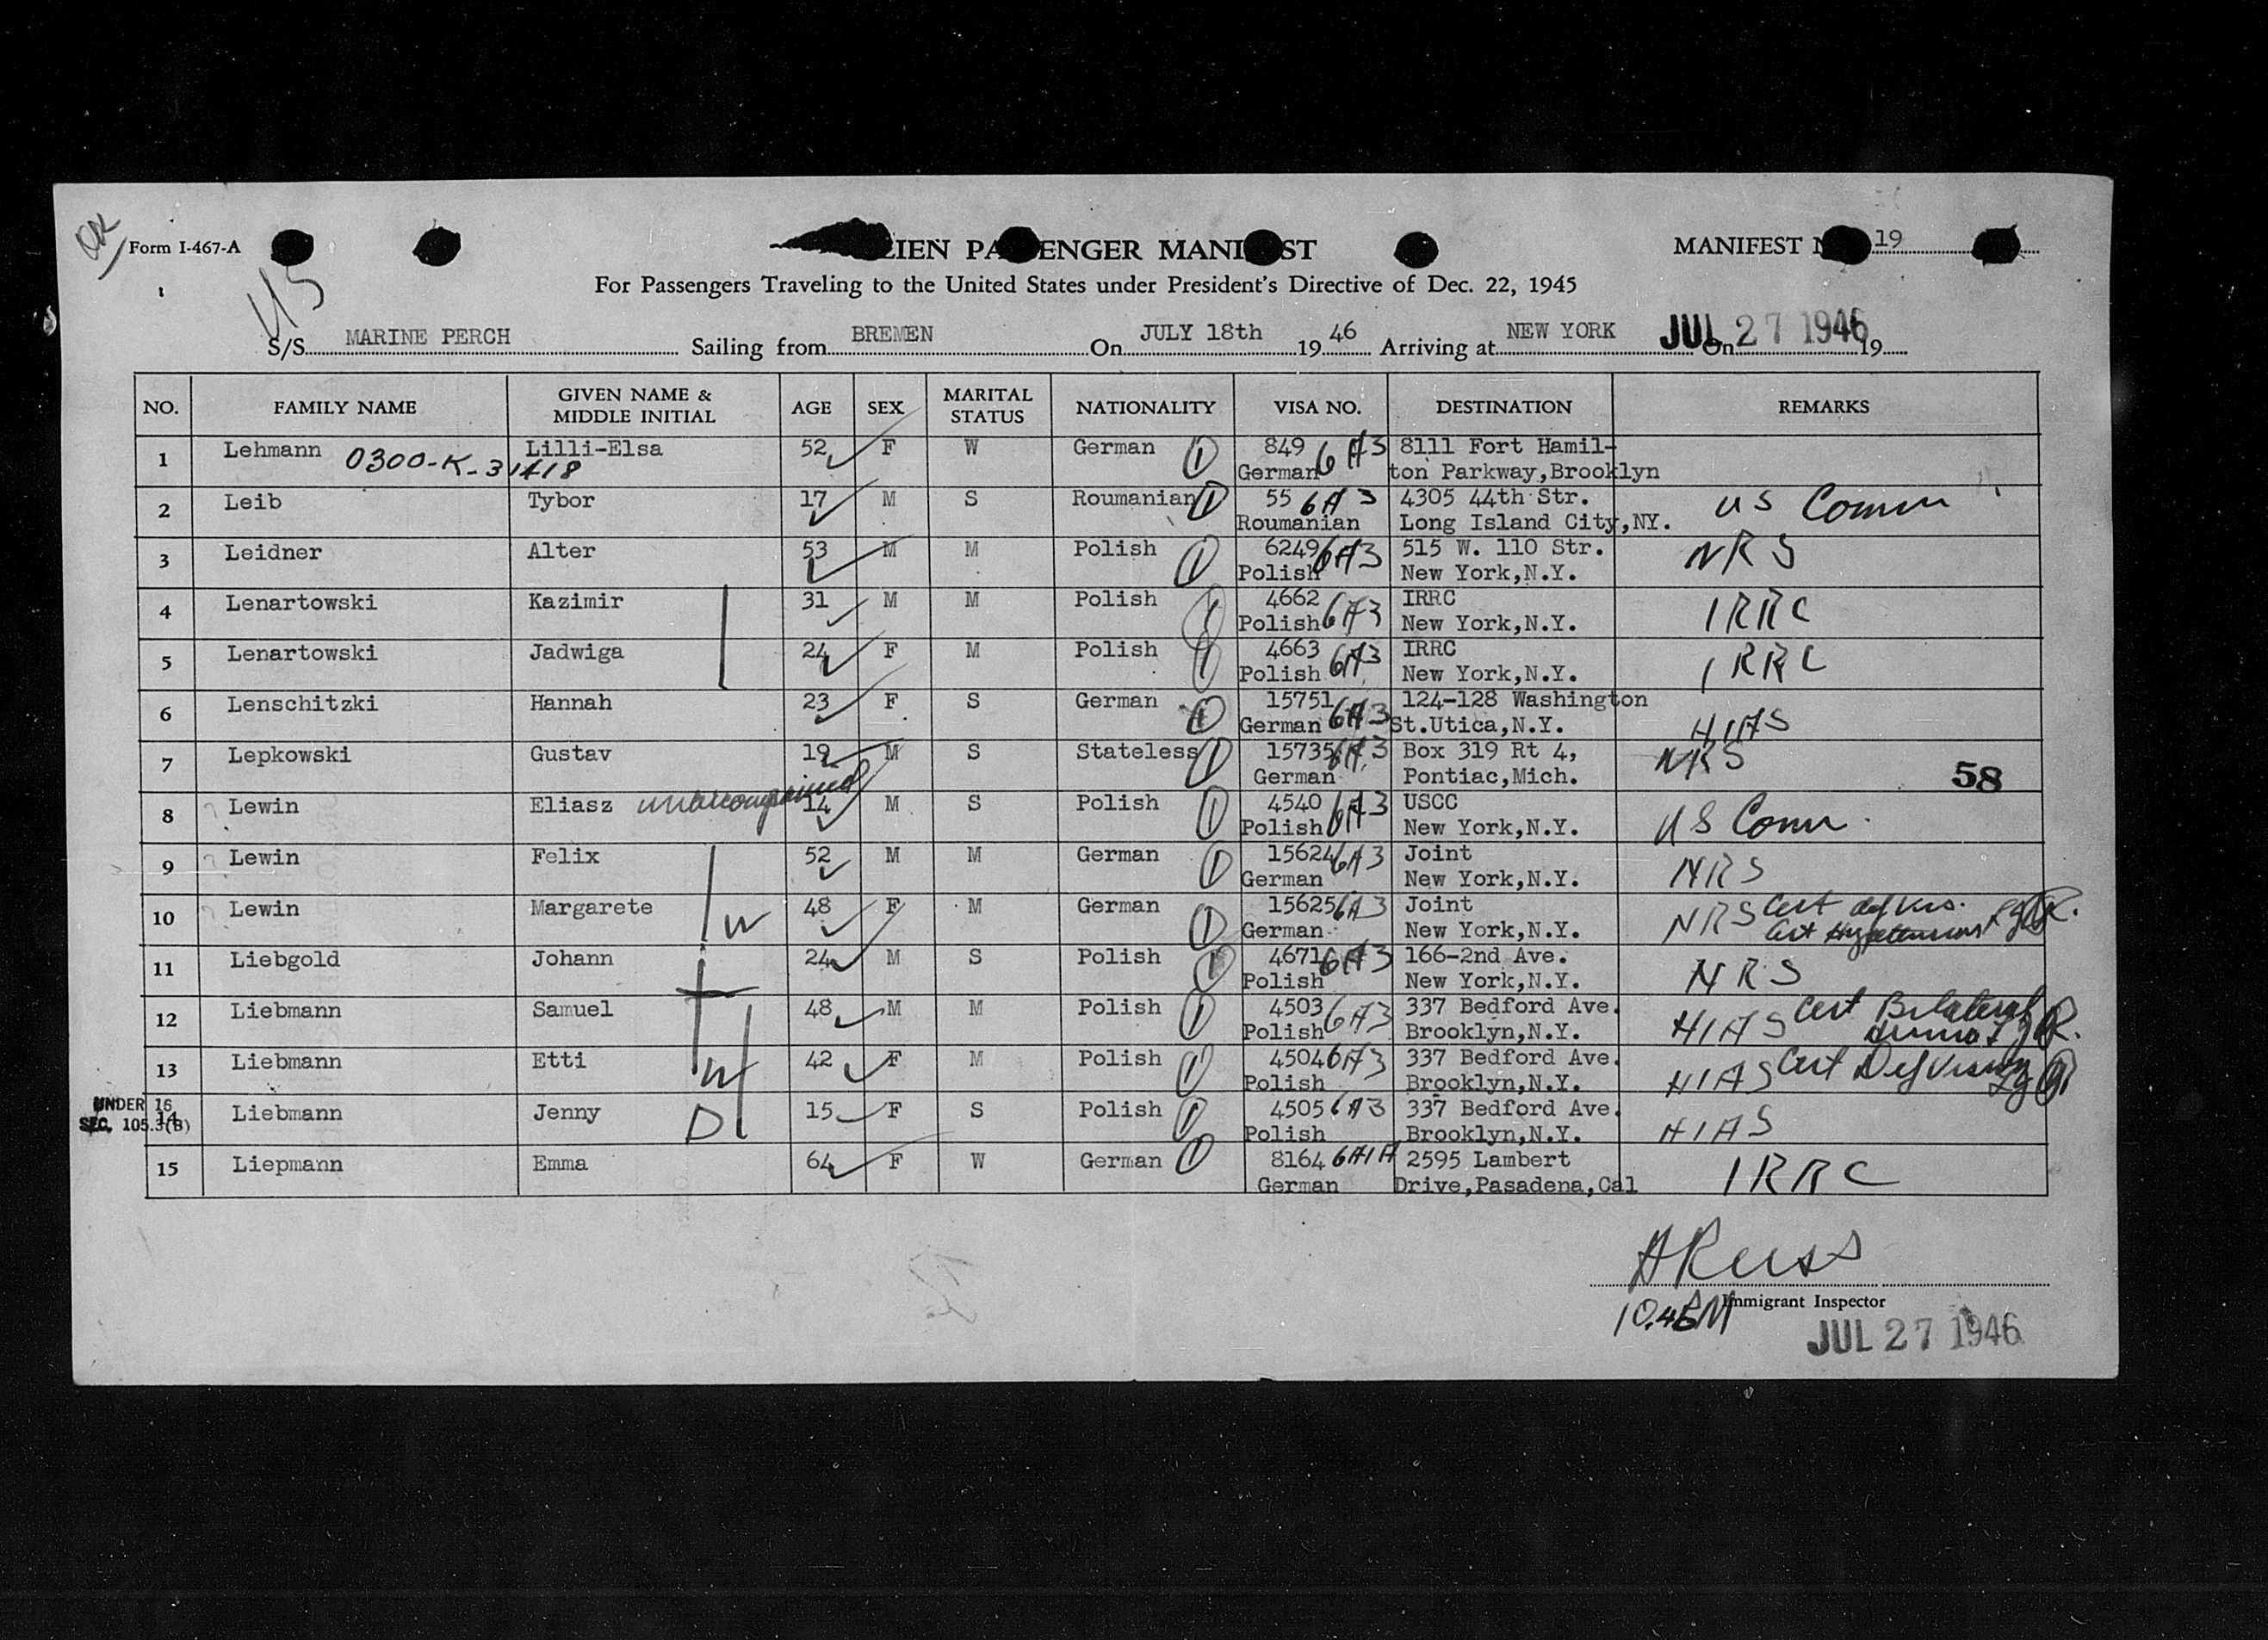 OK
Form I-467-A
ALIEN PASSENGER MANIFEST
MANIFEST No. 19
1
For Passengers Traveling to the United States under President's Directive of Dec. 22, 1945
US
S/S MARINE PERCH Sailing from BREMEN On JULY 18th 19 46 Arriving at NEW YORK On JUL 27 1946 19
NO. FAMILY NAME GIVEN NAME & MIDDLE INITIAL AGE SEX MARITAL STATUS NATIONALITY VISA NO. DESTINATION REMARKS
1 Lehmann Lilli-Elsa 52 F W German 1 849 6A3 8111 Fort Hamil-
0300-K-31418 German ton Parkway,Brooklyn
2 Leib Tybor 17 M S Roumanian 1 55 6A3 4305 44th Str. US Comm
Roumanian Long Island City,NY.
3 Leidner Alter 53 M M Polish 1 6249 6A3 515 W. 110 Str. NRS
Polish New York,N.Y.
4 Lenartowski Kazimir 31 M M Polish 1 4662 6A3 IRRC IRRC
Polish New York,N.Y.
5 Lenartowski Jadwiga 24 F M Polish 1 4663 6A3 IRRC IRRC
Polish New York,N.Y.
6 Lenschitzki Hannah 23 F S German 1 15751 6A3 124-128 Washington HIAS
German St.Utica,N.Y.
7 Lepkowski Gustav 19 M S Stateless 1 15735 6A3 Box 319 Rt 4, NRS
German Pontiac,Mich. 58
8 Lewin Eliasz unaccompanied 14 M S Polish 1 4540 6A3 USCC US Comm.
Polish New York,N.Y.
9 Lewin Felix 52 M M German 1 15624 6A3 Joint NRS
German New York,N.Y.
10 Lewin Margarete W 48 F M German 1 15625 6A3 Joint NRS Cert def vis.
German New York,N.Y. Cert Hypertension
11 Liebgold Johann 24 M S Polish 1 4671 6A3 166-2nd Ave. NRS
Polish New York,N.Y.
12 Liebmann Samuel 48 M M Polish 1 4503 6A3 337 Bedford Ave. HIAS Cert Bilateral
Polish Brooklyn,N.Y.
13 Liebmann Etti W 42 F M Polish 1 4504 6A3 337 Bedford Ave. HIAS Cert Def Vision
Polish Brooklyn,N.Y.
UNDER 16
SEC. 105.3(B)
14 Liebmann Jenny D 15 F S Polish 1 4505 6A3 337 Bedford Ave. HIAS
Polish Brooklyn,N.Y.
15 Liepmann Emma 64 F W German 1 8164 6A1A 2595 Lambert IRRC
German Drive,Pasadena,Cal
A Reiss
Immigrant Inspector
10.45 AM
JUL 27 1946